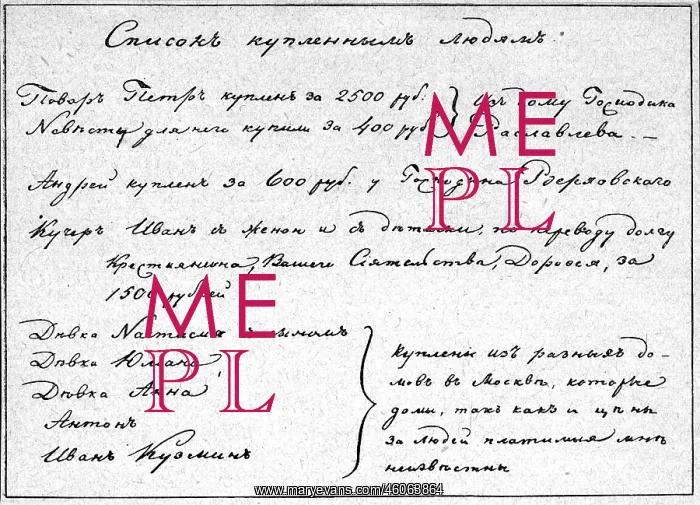 Списокъ купленнымъ людямъ.
Поваръ Петръ купленъ за 2500 руб.
Невѣсту для него купили за 400 руб.
изъ дому Господина
Раславлева. —
Андрей купленъ за 600 руб. у Господина
Кучеръ Иванъ съ женой и съ дѣтьми, по переводу долгу
Крестьянина, Вашего Сіятельства, Дороѳея, за
1500 рублей
Дѣвка Настасья съ сыномъ
Дѣвка
Дѣвка Анна
Антонъ
Иванъ Кузминъ
Куплены изъ разныхъ до-
мовъ въ Москвѣ, которые
домы, такъ какъ и цѣны
за людей платимыя мнѣ
неизвѣстны
ME
PL
ME
PL
www.maryevans.com/46063864